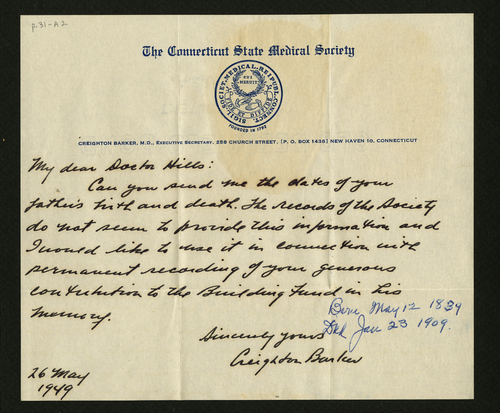 p. 31-A2
The Connecticut State Medical Society
SIGIL. SOCIET. MEDICAL. REIPUBL. CONNECT.
FOUNDED IN 1792
CREIGHTON BARKER, M.D., EXECUTIVE SECRETARY, 258 CHURCH STREET, (P. O. BOX 1438) NEW HAVEN 10, CONNECTICUT
My dear Doctor Hills:
Can you send me the dates of your
father's birth and death. The records of the Society
do not seem to provide this information and
I would like to use it in connection with
permanent recording of your generous
contribution to the Building Fund in his
memory.
Born May 12 1839
Died Jan 23 1909.
Sincerely yours
Creighton Barker
26 May
1949